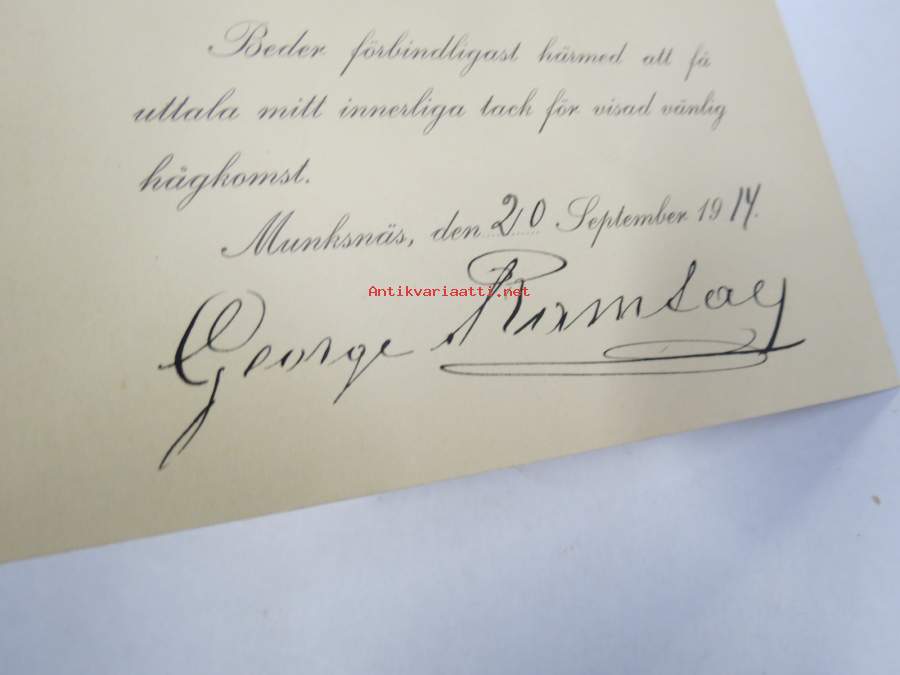 Beder förbindligast härmed att få
uttala mitt innerliga tack för visad vänlig
hågkomst.
Munksnäs, den 20 September 1914.
Antikvariaatti.net
George Ramsay